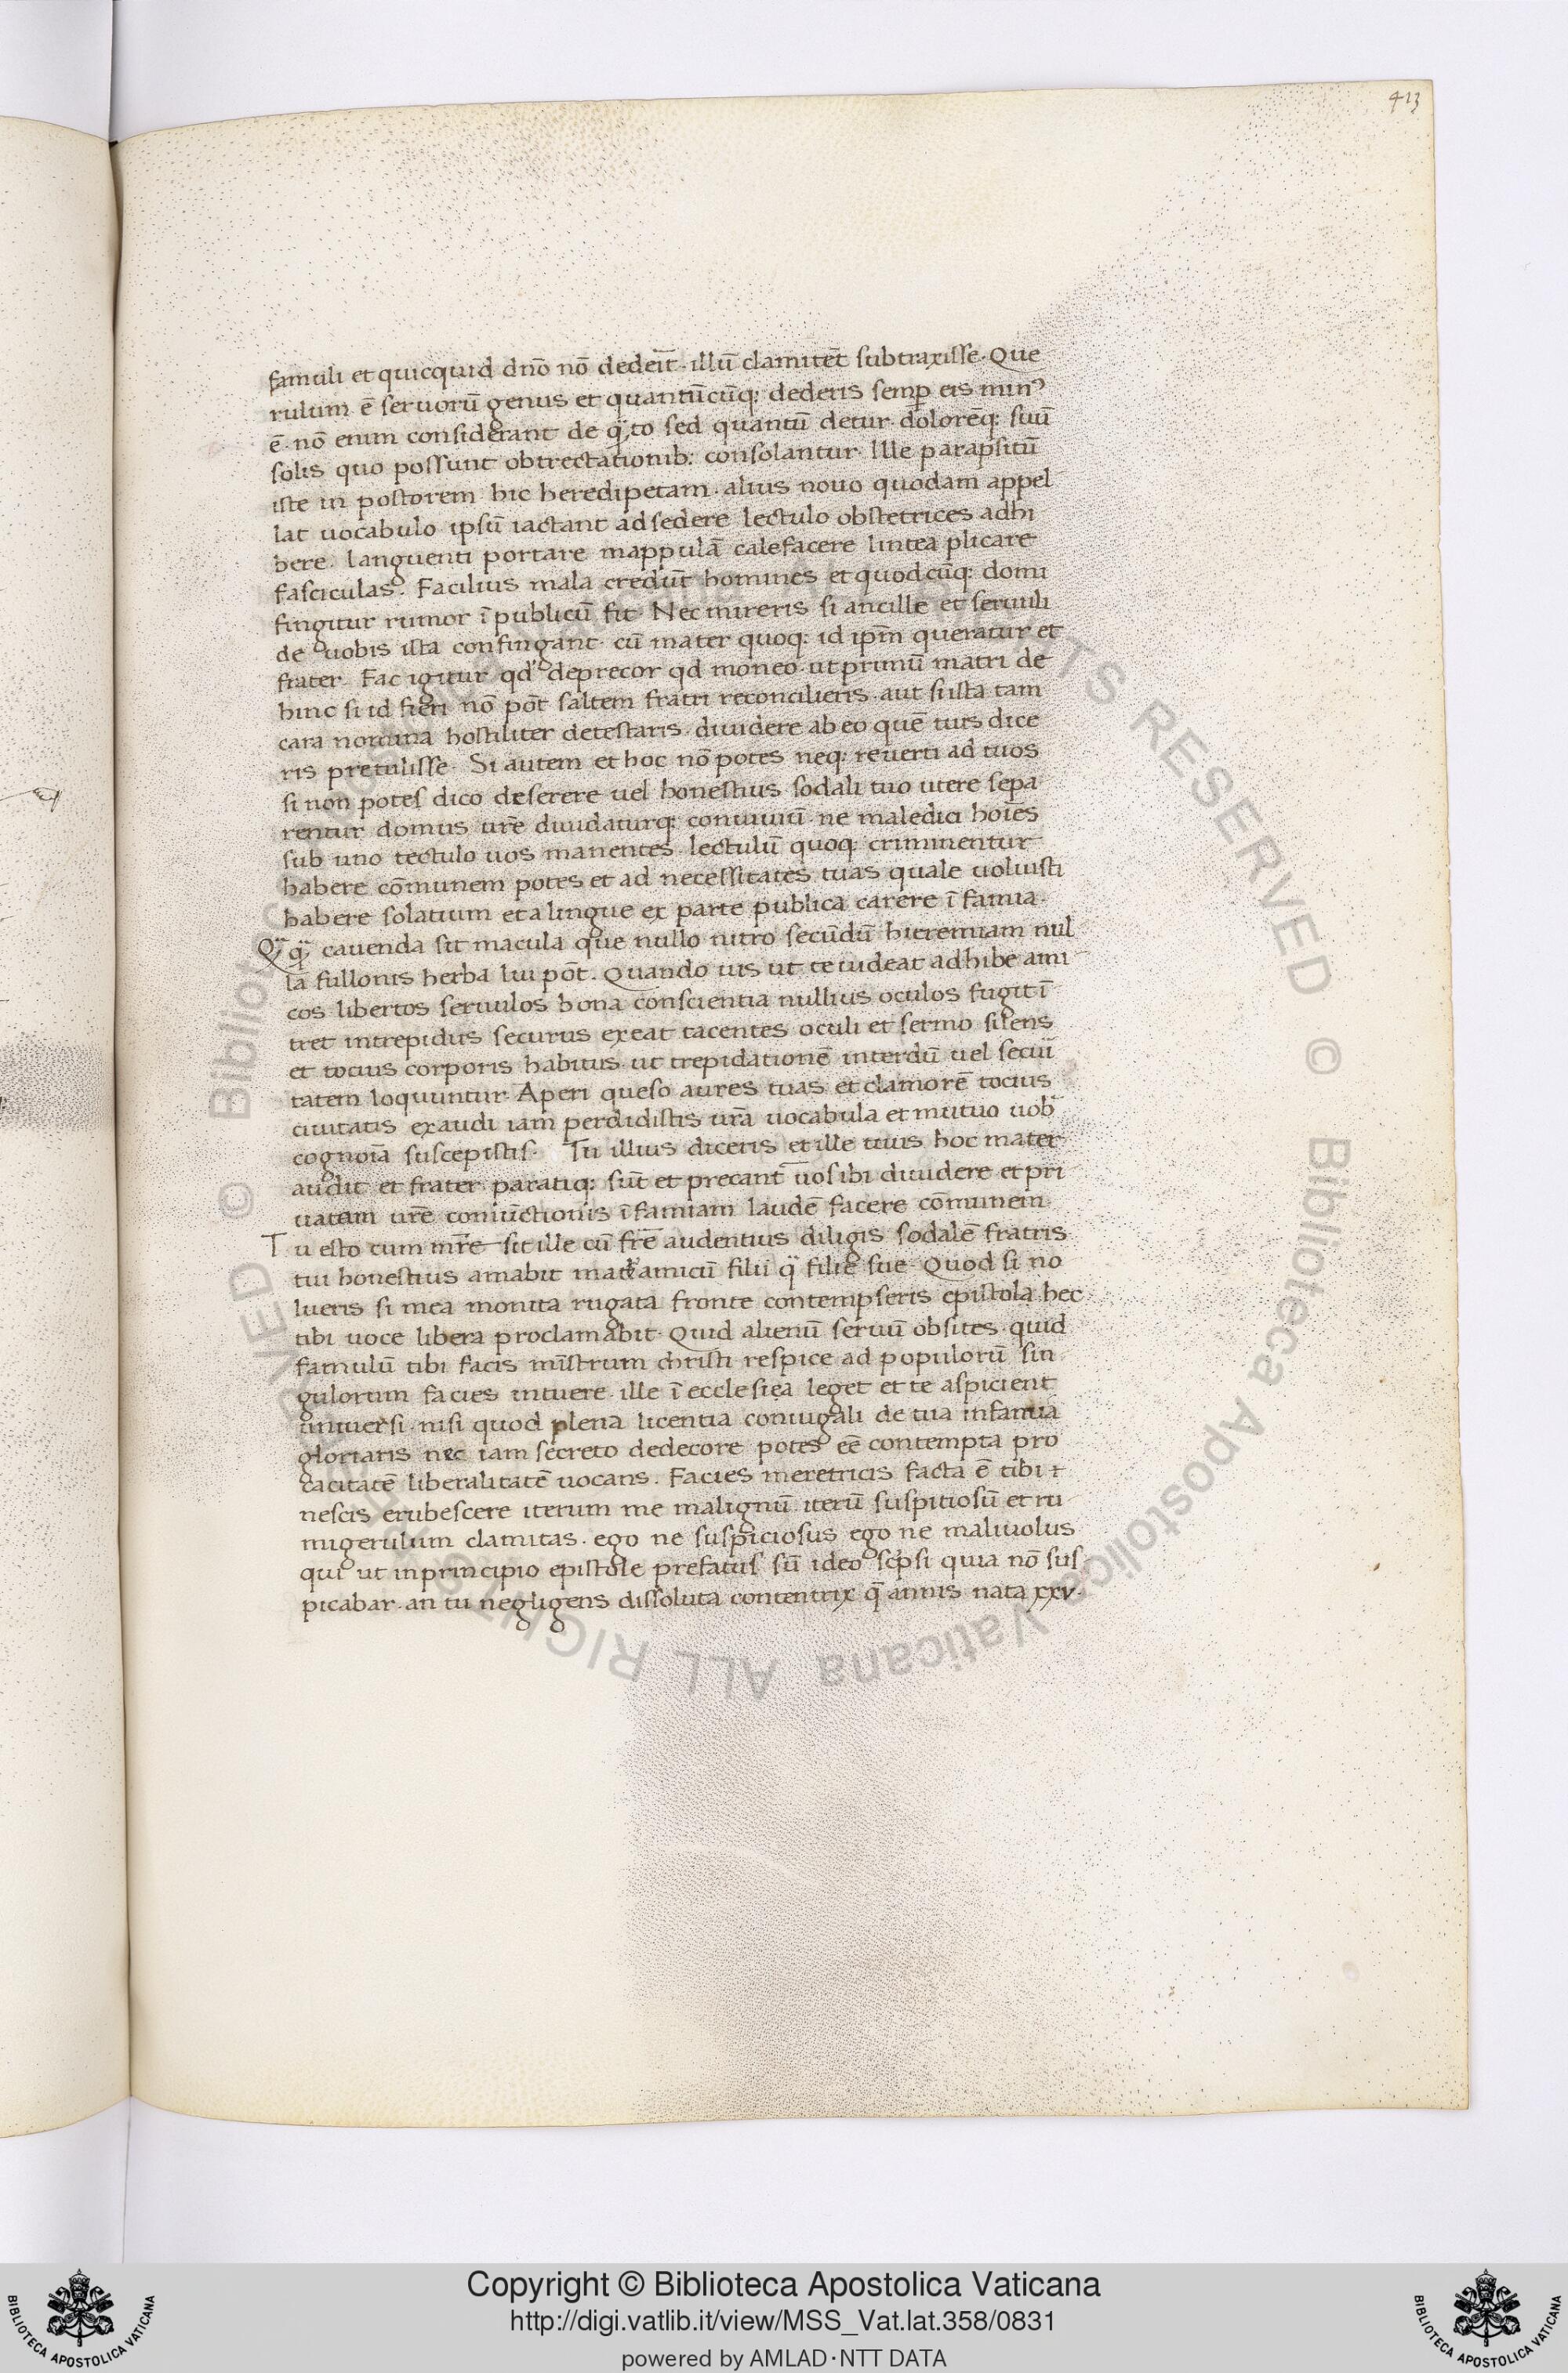 413
famuli et quicquid dn̄o nō dedeīt· illū clamitēt subtraxisse· Que
rulum ē seruorū genus et quantūcūq; dederis semp̄ eis minꝰ
ē· nō enim considerant de qᷓto sed quantū detur· dolorēq; suū
solis quo possunt obtrectationib; consolantur· Ille parapsitū
iste in postorem hic heredipetam· alius nouo quodam appel
lat uocabulo ipsū iactant adsedere lectulo obstetrices adhi
bere· languenti portare mappulā calefacere lintea plicare
fasciculas· Facilius mala credūt homines et quodcūq; domi
fingitur rumor ī publicū fit· Nec mireris si ancille et seruuli
de uobis ista confingant· cū mater quoq; id ip̄m queratur et
frater· Fac igitur qd̓ deprecor qd moneo· ut primū matri de
hinc si id fieri nō pōt saltem fratri reconcilieris· aut si ista tam
cara nomina hostiliter detestaris· diuidere ab eo quē tuis dice
ris pretulisse· Si autem et hoc nō potes neq; reuerti ad tuos
si non potes dico deserere uel honestius sodali tuo utere sepa
rentur domus ur̄e diuidaturq; conuiuiū· ne maledici hoīes
sub uno tectulo uos manentes· lectulū quoq; criminentur
habere cōmunem potes et ad necessitates tuas quale uoluisti
habere solatium et alingue ex parte publica carere ī famia·
Qᷓqᷓ cauenda sit macula que nullo nitro secūdū hieremiam nul
lā fullonis herba lui pōt· Quando uis ut te uideat adhibe ami
cos libertos seruulos bona conscientia nullius oculos fugit ī
tret intrepidus securus exeat tacentes oculi et sermo silens
et tocius corporis habitus ut trepidationē interdū uel secui
tatem loquuntur Aperi queso aures tuas et clamorē tocius
ciuitatis exaudi iam perdidistis ur̄a uocabula et mutuo uob̄
cognoīa suscepistis· Tu illius diceris et ille tuus hoc mater
audit et frater paratiq; sūt et precant̄ uos ibi diuidere et pri
uatam ur̄e coniūctionis ī famiam laudē facere cōmunem·
Tu esto cum mr̄e sit ille cū fr̄e audentius diligis sodalē fratris
tui honestius amabit mater amicū filii qᷓ filie sue· Quod si no
lueris si mea monita rugata fronte contempseris epistola hec
tibi uoce libera proclamabit· Quid alienū seruū obsites· quid
famulū tibi facis mīstrum christi respice ad populorū sin
gulorum facies intuere· ille ī ecclesiea leget et te aspicient
uniuersi· nisi quod plena licentia coniugali de tua infamia
gloriaris nec iam secreto dedecore potes eē contempta pro
cacitatē liberalitatē uocans· Facies meretricis facta ē tibi ⁊
nescis erubescere iterum me malignū iterū suspitiosū et ru
migerulum clamitas· ego ne suspiciosus ego ne maliuolus
qui ut inprincipio epistole prefatus sū ideo sc̄psi quia nō sus
picabar· an tu negligens dissoluta contentrix q̄ annis nata xxv·
Copyright © Biblioteca Apostolica Vaticana
http://digi.vatlib.it/view/MSS_Vat.lat.358/0831
powered by AMLAD·NTT DATA